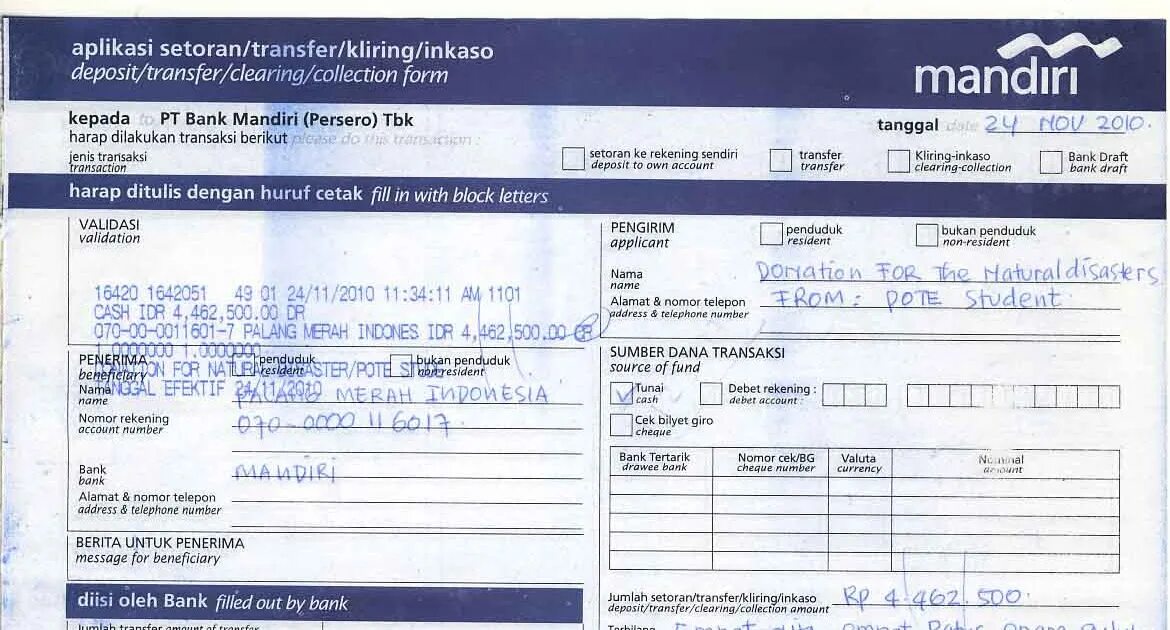 aplikasi setoran/transfer/kliring/inkaso
deposit/transfer/clearing/collection form
mandiri
kepada to PT Bank Mandiri (Persero) Tbk
harap dilakukan transaksi berikut please do this transaction :
tanggal date 24 NOV 2010.
jenis transaksi
transaction
setoran ke rekening sendiri
deposit to own account
transfer
transfer
Kliring-inkaso
clearing-collection
Bank Draft
bank draft
harap ditulis dengan huruf cetak fill in with block letters
VALIDASI
validation
16420 1642051 49 01 24/11/2010 11:34:11 AM 1101
CASH IDR 4,462,500.00 DR
070-00-0011601-7 PALANG MERAH INDONES IDR 4,462,500.00 CR
1.0000000 1.0000000
DONATION FOR NATURAL DISASTER/POTE
TANGGAL EFEKTIF 24/11/2010
PENERIMA
beneficiary
penduduk
resident
bukan penduduk
non-resident
Nama
name
PALANG MERAH INDONESIA
Nomor rekening
account number
070-0000 116017.
Bank
bank
MANDIRI
Alamat & nomor telepon
address & telephone number
BERITA UNTUK PENERIMA
message for beneficiary
diisi oleh Bank filled out by bank
Jumlah transfer amount of transfer
PENGIRIM
applicant
penduduk
resident
bukan penduduk
non-resident
Nama
name
Donation FOR The Natural disasters
Alamat & nomor telepon
address & telephone number
FROM : POTE Student
SUMBER DANA TRANSAKSI
source of fund
Tunai
cash
Debet rekening :
debet account :
Cek bilyet giro
cheque
Bank Tertarik
drawee bank
Nomor cek/BG
cheque number
Valuta
currency
Nominal
amount
Jumlah setoran/transfer/kliring/inkaso
deposit/transfer/clearing/collection amount
RP 4.462.500.
Terbilang